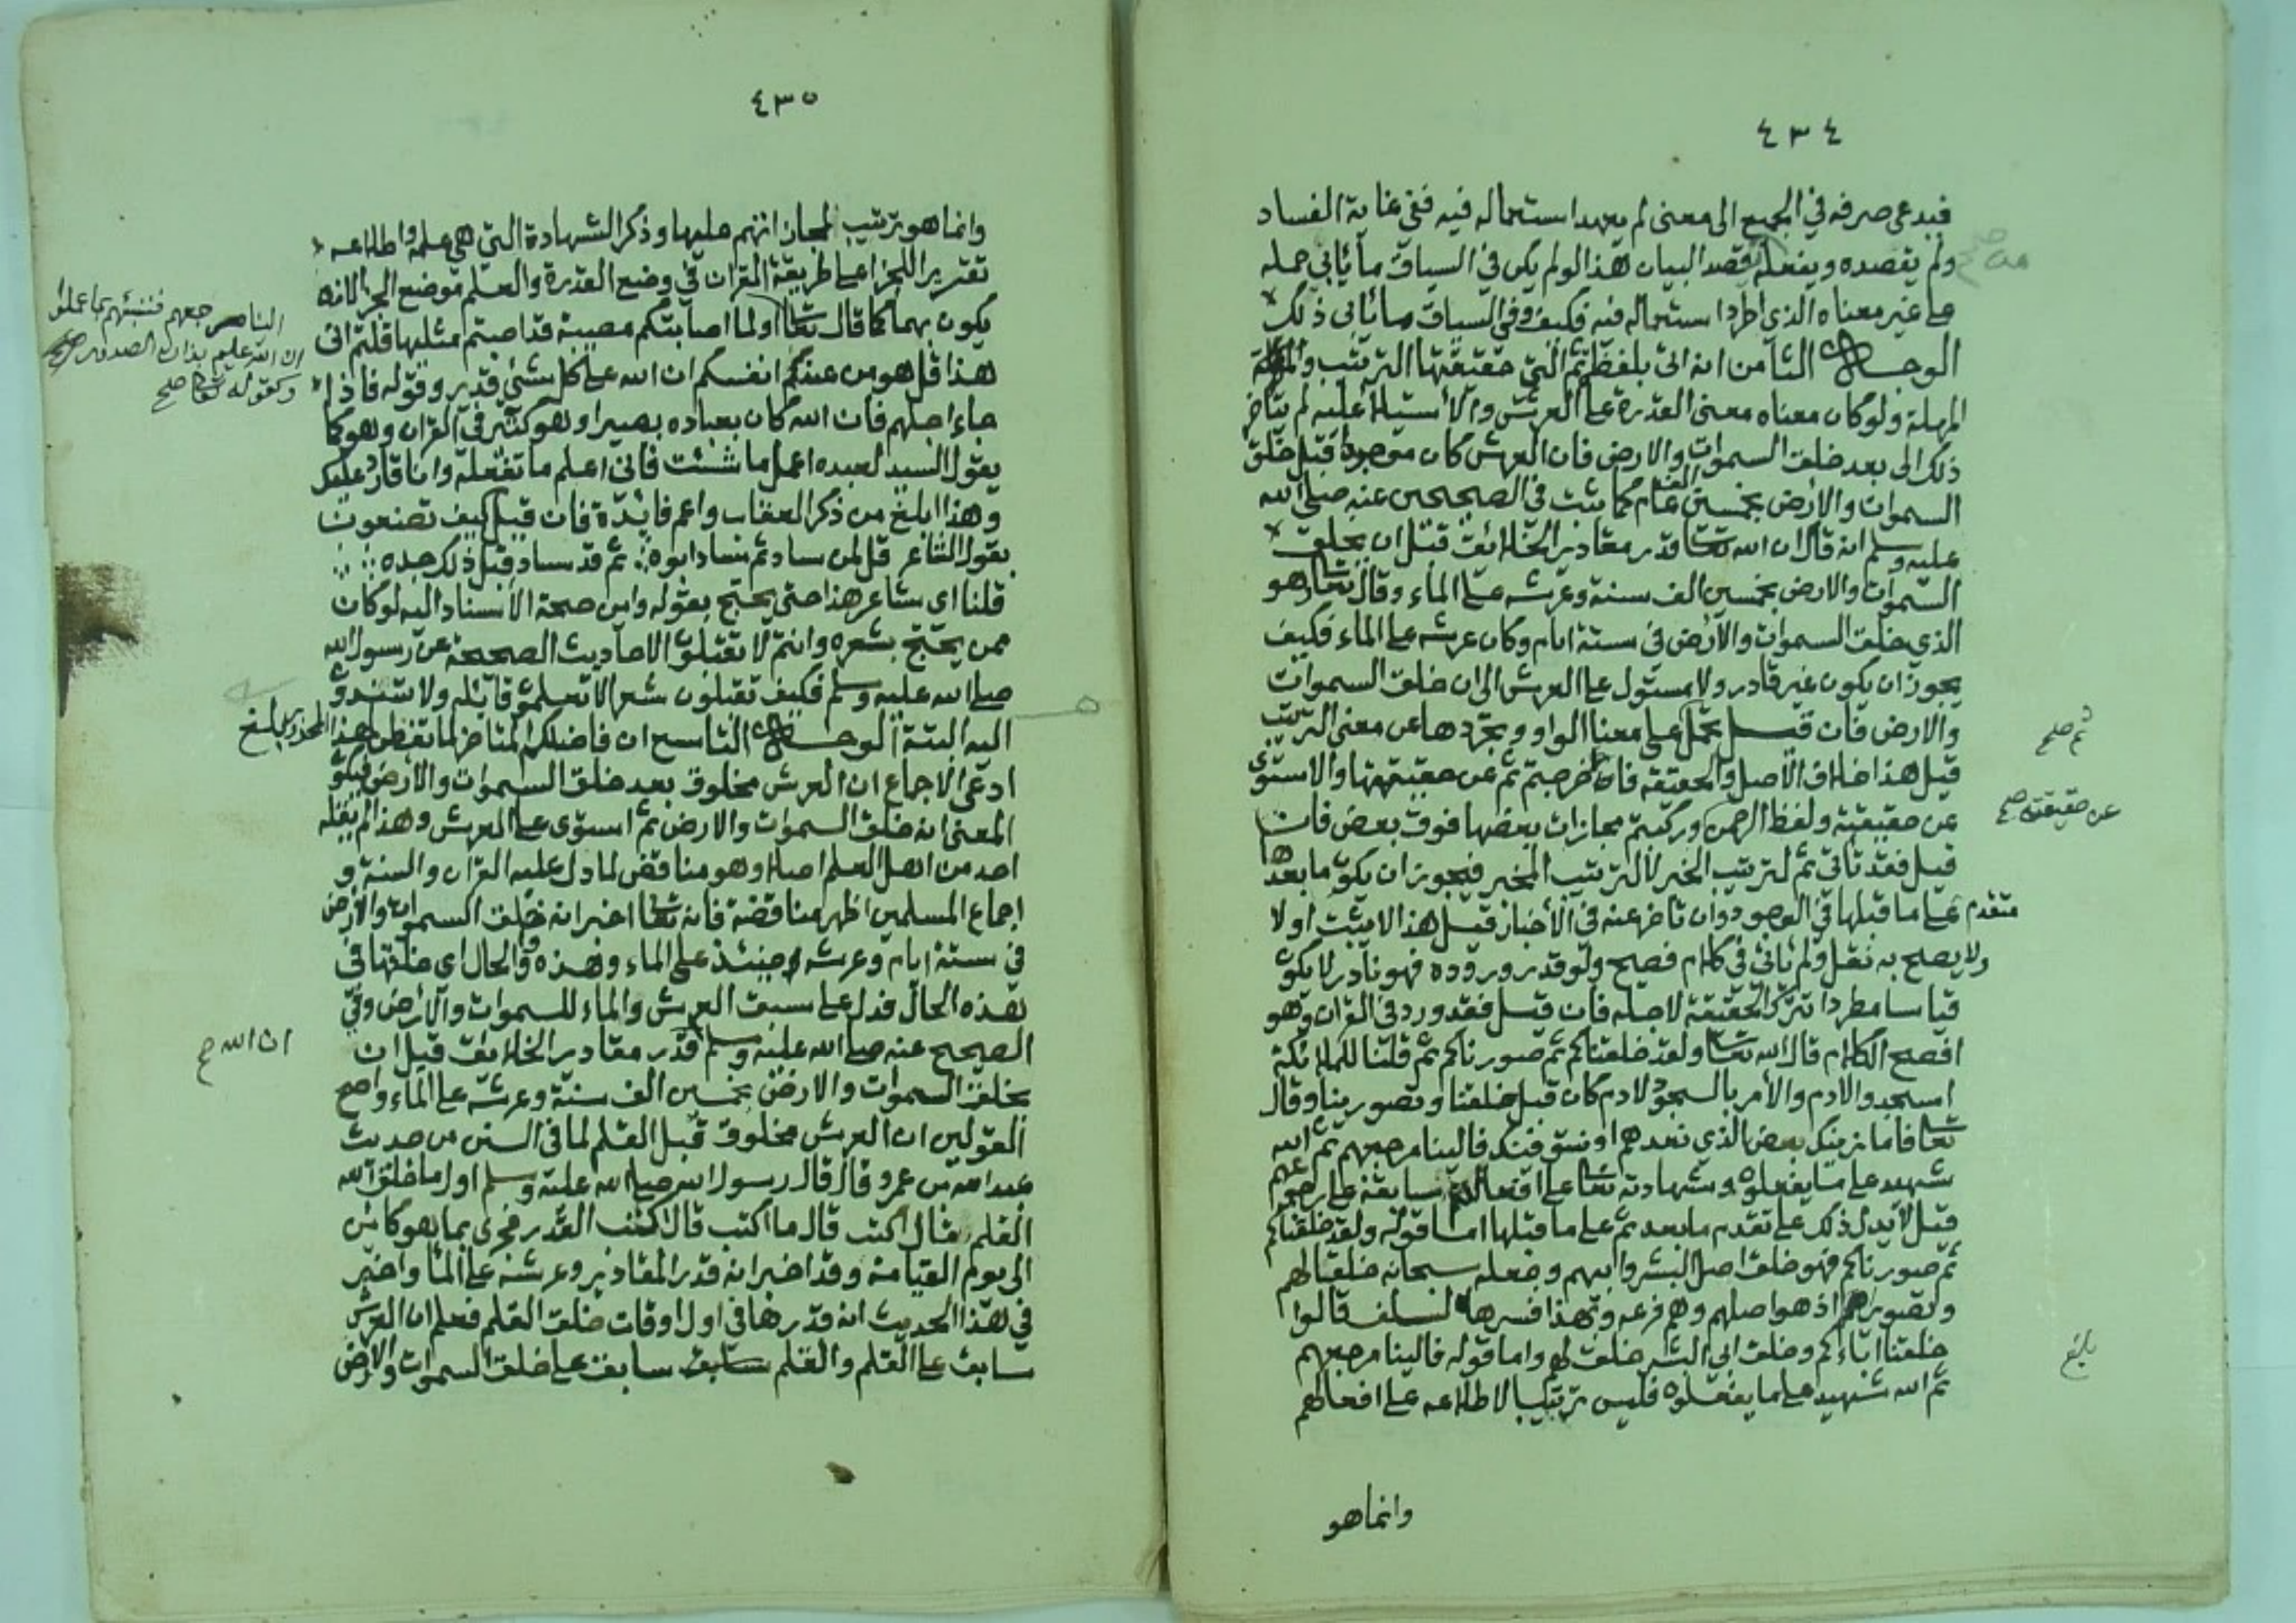 ٤٣٤
فيدعى صرفه في الجميع الى معنى لم يعهد استعماله فيه ففي غاية الفساد
ولم يقصده ويفعله من قصد البيان هذا لو لم يكن في السياق ما يأبى حمله
على غير معناه الذي اطرد استعماله فيه فكيف وفي السياق ما يأبى ذلك
الوجه الثامن انه اتى بلفظ ثم التي حقيقتها الترتيب و
المهلة ولو كان معناه معنى القدرة على العرش والاستيلا عليه لم يتأخر
ذلك الى بعد خلق السموات والارض فان العرش كان موجودا قبل خلق
السموات والارض بخمسين الف عام كما ثبت في الصحيحين عنه صلى الله
عليه وسلم انه قال ان الله تعا قدر مقادير الخلائق قبل ان يخلق
السموات والارض بخمسين الف سنة وعرشه على الماء وقال تعا وهو
الذي خلق السموات والارض في ستة ايام وكان عرشه على الماء فكيف
يجوز ان يكون غير قادر ولا مستول على العرش الى ان خلق السموات
والارض فان قيل نحمل ثم على معنا الواو ونجردها عن معنى الترتيب
ثم صح
قيل هذا خلاف الاصل والحقيقة فاخرجتم ثم عن حقيقتها والاستوى
عن حقيقته ولفظ الرحمن وركبتم مجازات بعضها فوق بعض فان
عن حقيقته صح
قيل فقد تاتي ثم لترتيب الخبر لا لترتيب المخبر فيجوز ان يكو ما بعدها
متقدم على ما قبلها في الوجود وان تاخر عنه في الاخبار قيل هذا لا يثبت اولا
ولا يصح به نقل ولم يأتي في كلام فصيح ولو قدر وروده فهو نادر لا يكو
قياسا مطردا تترك الحقيقة لاجله فان قيل فقد ورد في القران وهو
افصح الكلام قال الله تعا ولقد خلقناكم ثم صورناكم ثم قلنا للملائكة
اسجدوا لادم والأمر بالسجود لادم كان قبل خلقنا وتصويرنا وقال
تعا فاما نرينك بعض الذي نعدهم او نتوفينك فالينا مرجعهم ثم الله
شهيد على ما يفعلوه وشهادته تعا على افعالهم سابقة على رجوعهم
قيل لا يدل ذلك على تقدم ما بعد ثم على ما قبلها اما قوله ولقد خلقناكم
ثم صورناكم فهو خلق اصل البشر وابيهم وجعله سبحانه خلقا لهم
وتصويرهم اذ هو اصلهم وهم فرعه وبهذا فسرها السلف قالوا
خلقنا اباءكم وخلق ابي البشر خلق لهم واما قوله فالينا مرجعهم
بلغ
ثم الله شهيد على ما يفعلوه فليس ترتيبا لاطلاعه على افعالهم
وانما هو
٤٣٥
وانما هو ترتيب لمجازاتهم عليها وذكر الشهادة التي هي علمه واطلاعه
تقريرا للجزا على طريقة القران في وضع القدرة والعلم موضع الجزا لانه
يكون بهما كما قال تعا اولما اصابتكم مصيبة قد اصبتم مثليها قلتم انى
الينا مرجعهم فننبئهم بما عملوا
ان الله عليم بذات الصدور
وكقوله تعا صح
هذا قل هو من عند انفسكم ان الله على كل شئ قدير وقوله فاذا
جاء اجلهم فان الله كان بعباده بصيرا وهو كثير في القران وهو كما
يقول السيد لعبده اعمل ما شئت فاني اعلم ما تفعله وانا قادر عليك
وهذا ابلغ من ذكر العقاب واعم فائدة فان قيل كيف تصنعون
بقول الشاعر قل لمن ساد ثم ساد ابوه ∴ ثم قد ساد قبل ذلك جده ∴
قلنا اي شاعر هذا حتى يحتج بقوله واين صحة الاسناد اليه لو كان
ممن يحتج بشعره وانتم لا تقبلون الاحاديث الصحيحة عن رسول الله
صلى الله عليه وسلم فكيف تقبلون شعرا لا تعلمو قائله ولا تسندو
اليه البتة الوجه التاسع ان فاضلكم المتاخر لما تفطن لهذا المحذور
بلغ
ادعى الاجماع ان العرش مخلوق بعد خلق السموات والارض فيكو
المعنى انه خلق السموات والارض ثم استوى على العرش وهذا لم يقله
احد من اهل العلم اصلا وهو مناقض لما دل عليه القران والسنة و
اجماع المسلمين اظهر مناقضة فانه تعا اخبر انه خلق السموات والارض
في ستة ايام وعرشه حينئذ على الماء وهذه واو الحال اي خلقها في
هذه الحال فدل على سبق العرش والماء للسموات والارض وفي
الصحيح عنه صلى الله عليه وسلم قدر مقادير الخلائق قبل ان
ان الله صح
يخلق السموات والارض بخمسين الف سنة وعرشه على الماء واصح
القولين ان العرش مخلوق قبل القلم لما في السنن من حديث
عبد الله بن عمرو قال قال رسول الله صلى الله عليه وسلم اول ما خلق الله
القلم فقال اكتب قال ما اكتب قال اكتب القدر فجرى بما هو كائن
الى يوم القيامة وقد اخبر انه قدر المقادير وعرشه على الما واخبر
في هذا الحديث انه قدرها في اول اوقات خلق القلم فعلم ان العرش
سابق على القلم والقلم سابق على خلق السموات والارض